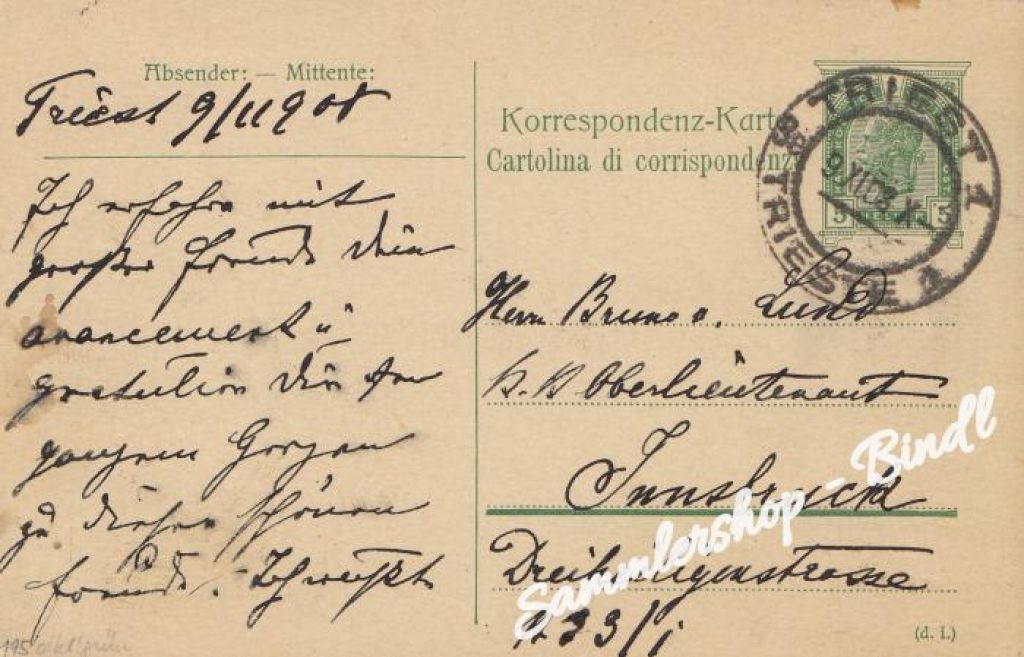 Absender: — Mittente:
Triest 9/11 908
Ich erfahre mit
großer Freude Dein
avancement u
gratuliere Dir
ganzem Herzen
zu dieser schönen
Freude. Ich
Korrespondenz-Karte
Cartolina di corrispondenz
TRIEST 1
9 XI 08 X
TRIESTE 1
5 5
Herrn Bruno v. Lund
K. K Oberlieutenant
Innsbruck
Dreiheiligenstrasse
33/I
(d. i.)
Sammlershop - Bindl
195